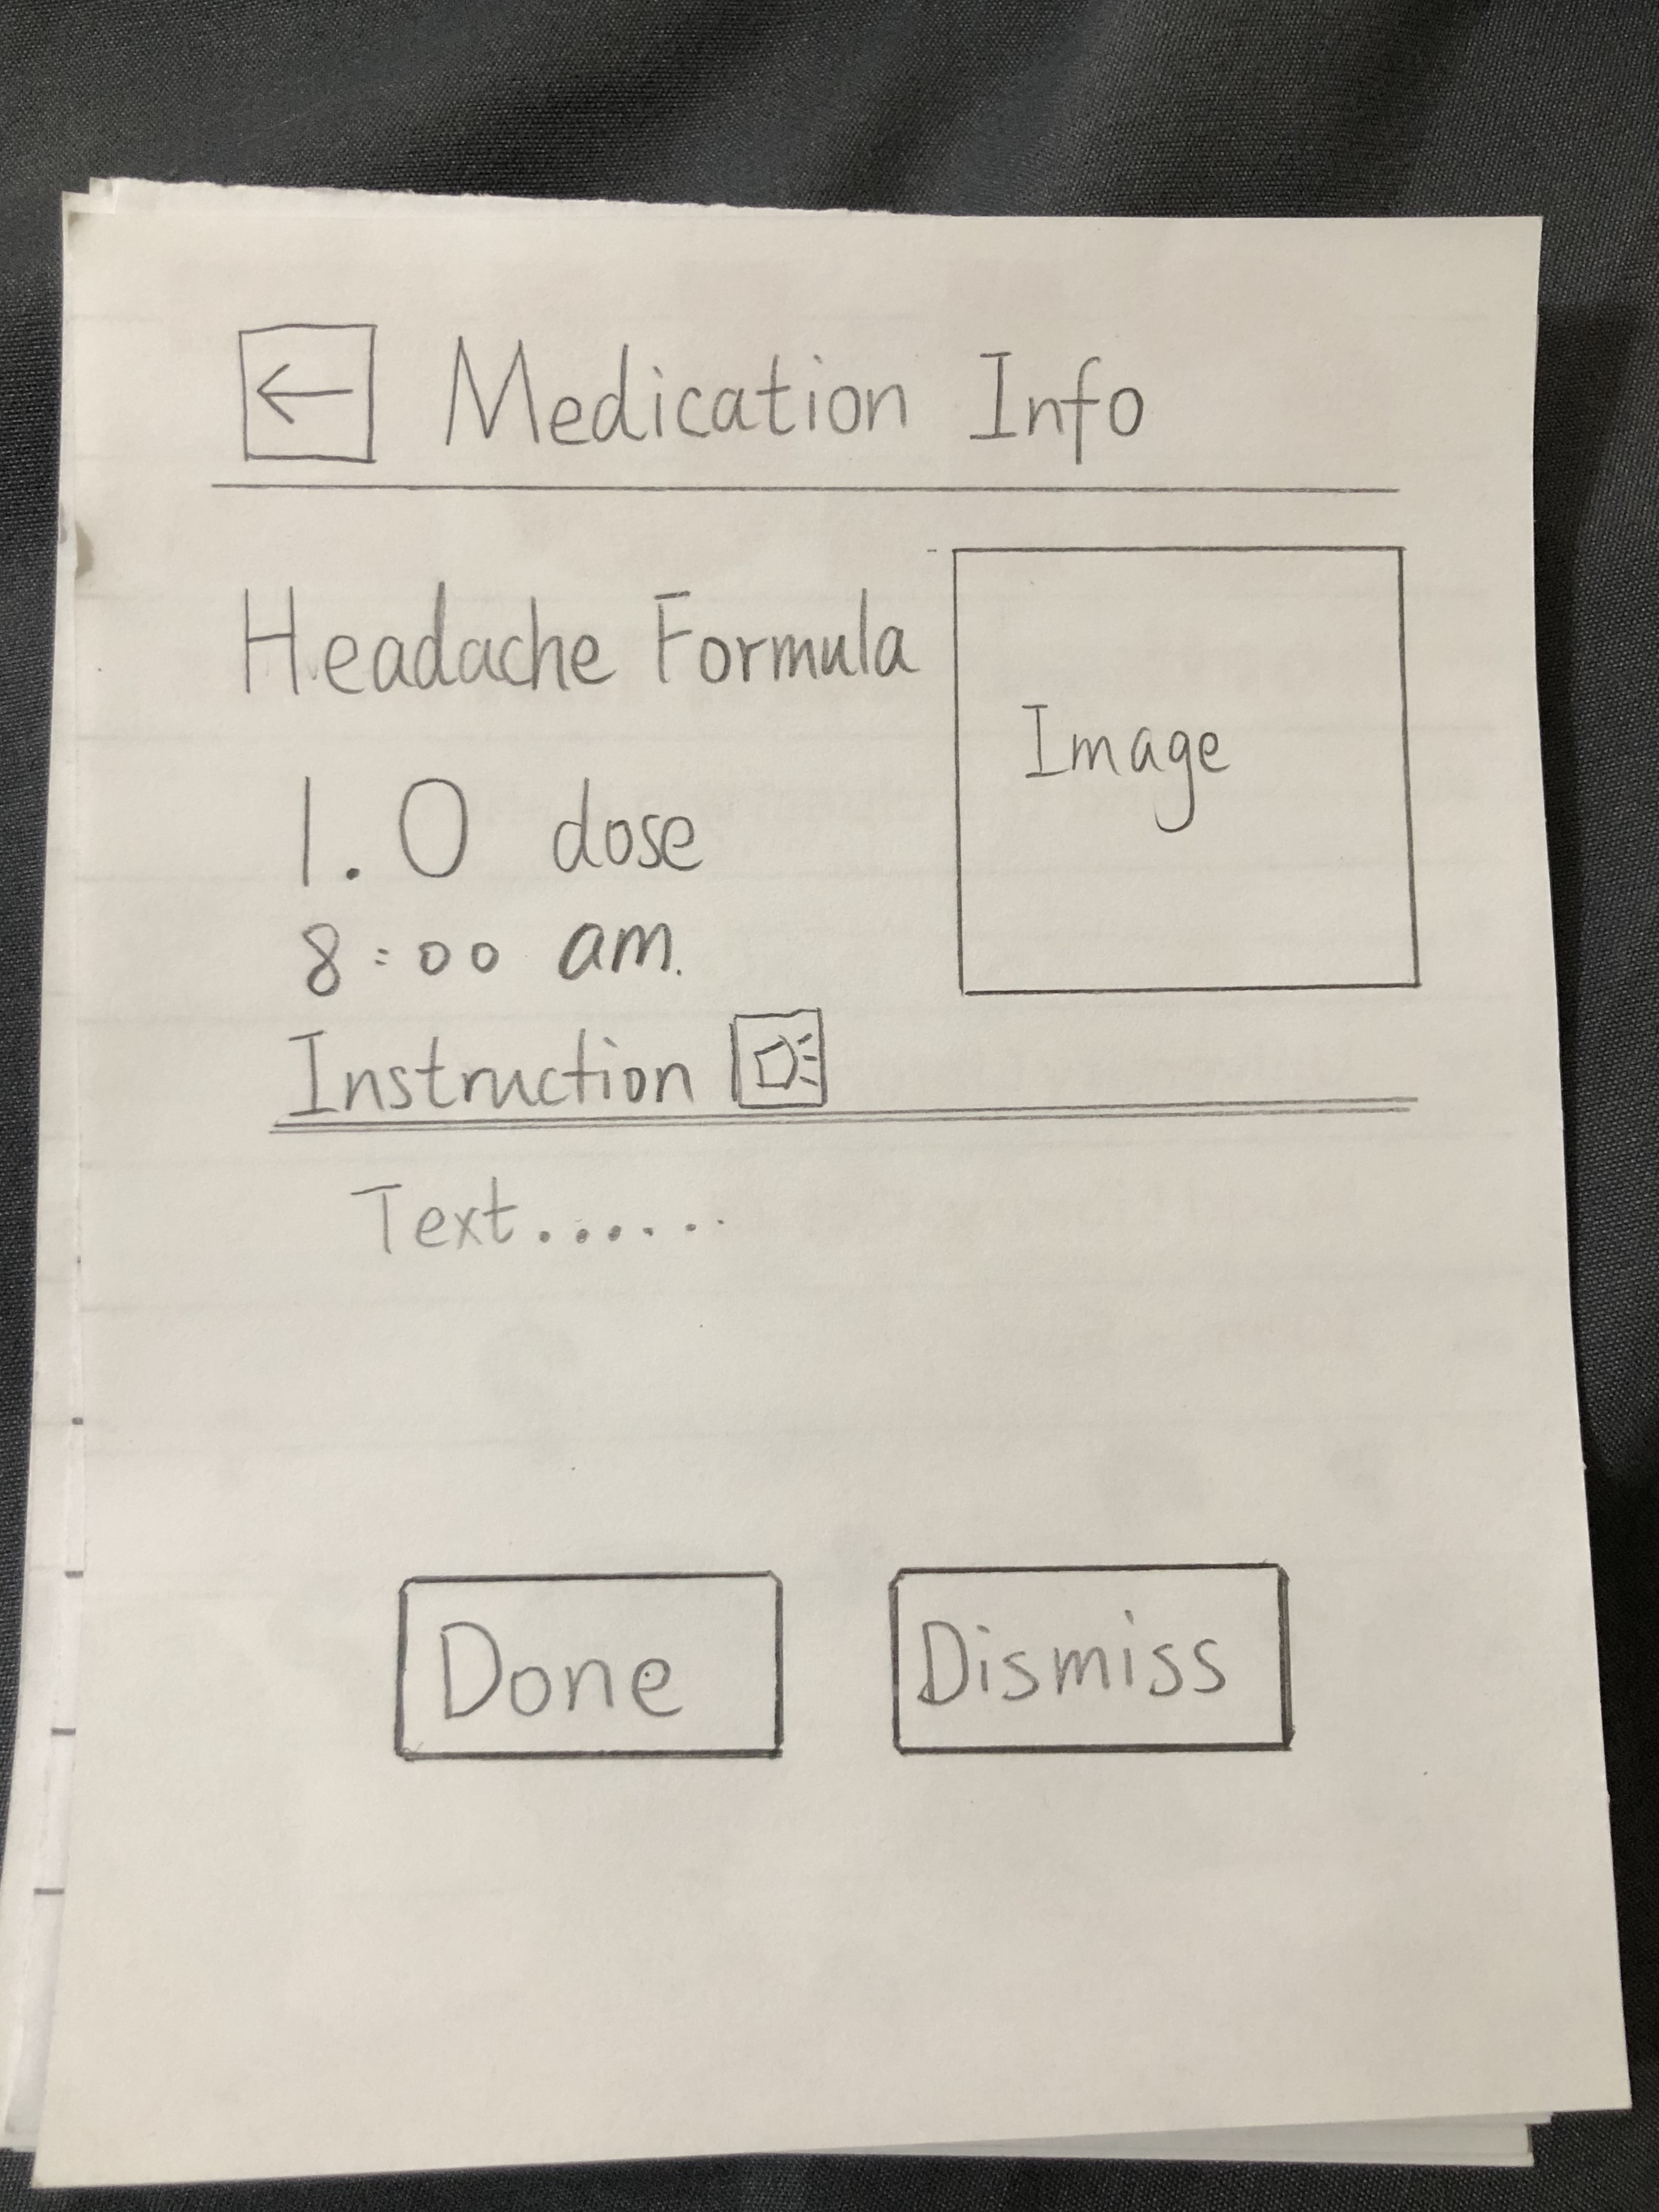 ← Medication Info
Headache Formula
Image
1.0 dose
8:00 am.
Instruction
Text.......
Done
Dismiss